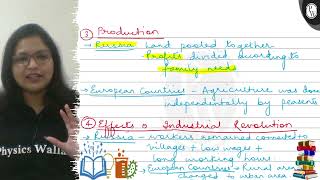 ③ Production
→ Russia - Land pooled together
Profits divided according to
family needs
→ European Countries - Agriculture was done
independently by peasants
④ Effects of Industrial Revolution
→ Russia - workers remained connected to
villages + low wages +
long working hours
→ European Countries - Rural areas
changed → urban area
Physics Walla